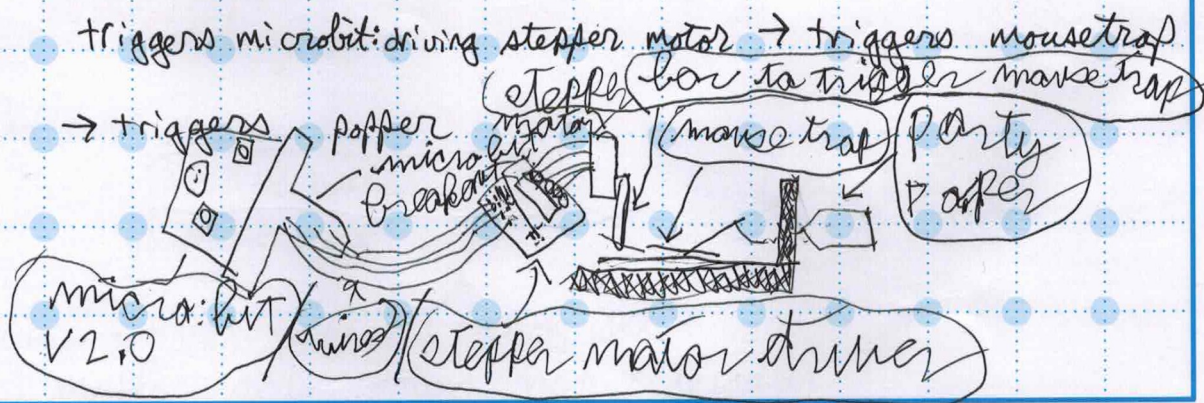 triggers microbit: driving stepper motor → triggers mousetrap
→ triggers popper
stepper motor
bar to trigger mousetrap
microbit breakout
mousetrap
party popper
micro:bit
V2.0
wires
stepper motor driver